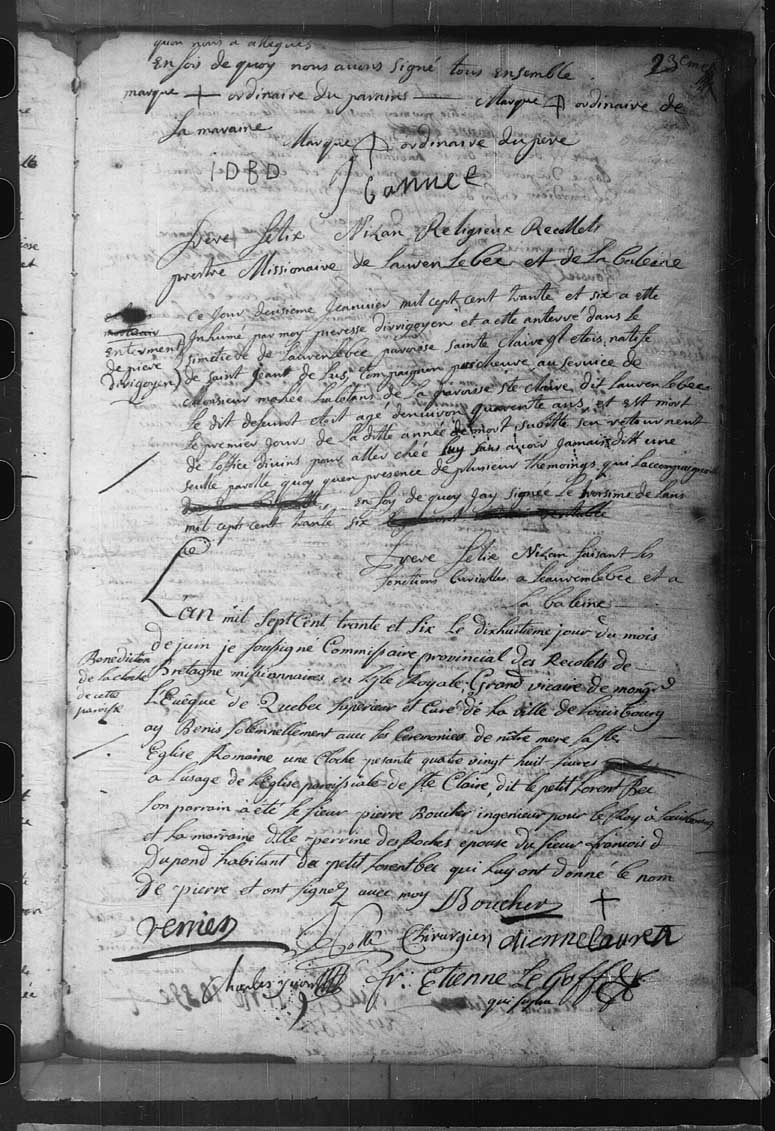 quon nous a allegués
En fois de quoy nous avons signé tous ensemble.
23eme
marque + ordinaire du parains — Marque + ordinaire de
la maraine
Marque + ordinaire du pere
IDBD
J Bannee
frere felix Nizan Religieux Recollets
prestre Missionaire de Laurenlebec et de La baleine
enterment
de piere
divigoyen
Ce jour deusieme Jeanvier mil cept cent trante et six a ette
Inhumé par moy pieresse divigoyen et a ette anterré dans le
simetiere de Laurenlebec paroisse sainte Claire natife
de saint Jeant de Lus, et compagnon pescheure au service de
Monsieur habitans de La paroisse Ste Claire dit Laurenlebec
Le dit defunt etoit agé denviron quarente ans et est mort
Le premier Jour de la ditte année de mort subitte sen retournent
de Loffice divins pour aller chée luy sans avoir Jamais ditt une
seulle parolle quoy quen presence de plusieur themoings qui Laccompagnoit
en foy de quoy Jay signée Le troisime de Lans
mil cept cent trante six
frere felix Nizan faisant les
fonctions Curialles a Leaurenlebec et a
La baleine
L'an mil sept Cent trante et six Le dixhuitieme jour du mois
de juin je soussigné Commissaire provincial des Recolets de
Benediction
de la cloche
de cette
paroisse
Bretagne missionnaires en Lisle Royale Grand vicaire de mongr
L'Evêque de Quebec superieur et Curé de La ville de Louisbourg
ay Benis solennellement avec les Ceremonies de nôtre mere la Ste
Eglise Romaine une Cloche pesante quatre vingt huit livres
a L'usage de L'Eglise paroissiale de Ste Claire dit le petit Lorent Bec
Son parrain a été le sieur pierre Boucher ingenieur pour le Roy à Louisbourg
et La marraine dlle perrine des Roches epouse du sieur francois
Dupond habitant du petit Lorentbec qui luy ont donné le nom
De pierre et ont signez avec moy Boucher +
verrier
Chirurgien
etienne Lauren
Charles
fr: Etienne Le Goff